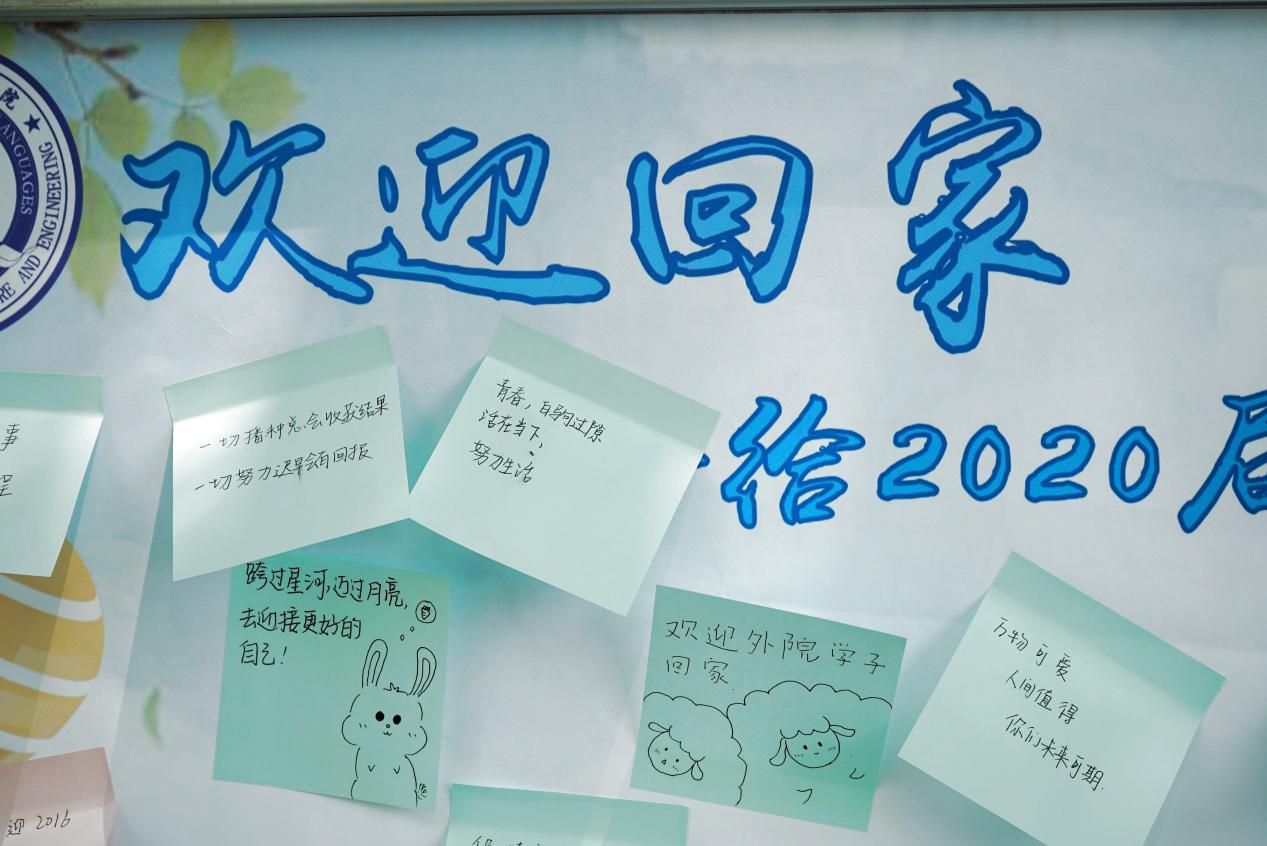 院
ANGUAGES
RE AND ENGINEERING
欢迎回家
给2020届
事
一切播种总会收获结果
一切努力迟早会有回报
青春，白驹过隙
活在当下，
努力生活
跨过星河，迈过月亮，
去迎接更好的
自己！
欢迎外院学子
回家
万物可爱
人间值得
你们未来可期.
迎 2016